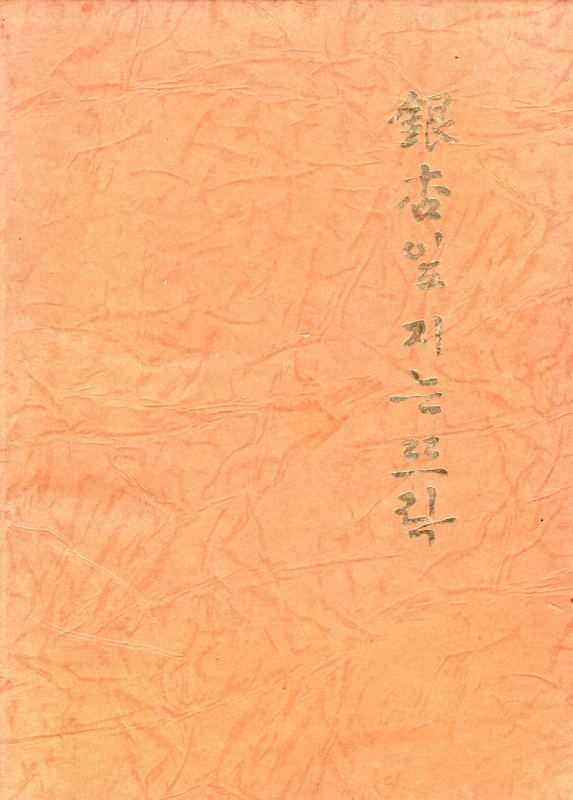 銀杏잎 지는 뜨락